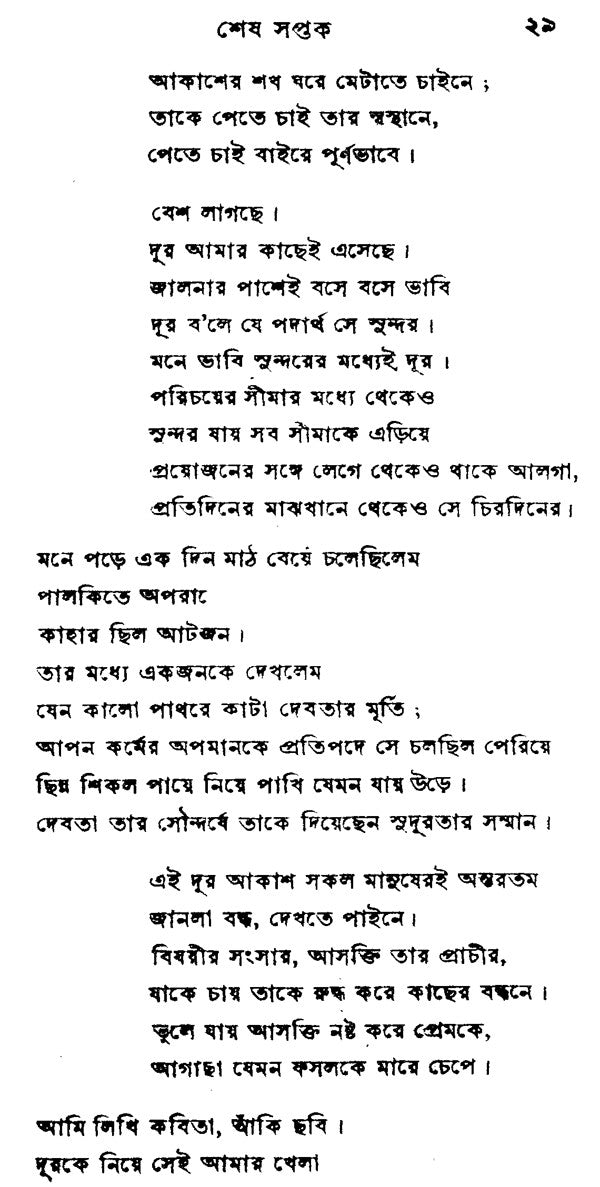 শেষ সপ্তক ২৯
আকাশের শখ ঘরে মেটাতে চাইনে ;
তাকে পেতে চাই তার স্বস্থানে,
পেতে চাই বাইরে পূর্ণভাবে ।
বেশ লাগছে ।
দূর আমার কাছেই এসেছে ।
জালনার পাশেই বসে বসে ভাবি
দূর ব'লে যে পদার্থ সে সুন্দর ।
মনে ভাবি সুন্দরের মধ্যেই দূর ।
পরিচয়ের সীমার মধ্যে থেকেও
সুন্দর যায় সব সীমাকে এড়িয়ে
প্রয়োজনের সঙ্গে লেগে থেকেও থাকে আলগা,
প্রতিদিনের মাঝখানে থেকেও সে চিরদিনের ।
মনে পড়ে এক দিন মাঠ বেয়ে চলেছিলেম
পালকিতে অপরা
কাহার ছিল আটজন ।
তার মধ্যে একজনকে দেখলেম
যেন কালো পাথরে কাটা দেবতার মূর্তি ;
আপন কর্মের অপমানকে প্রতিপদে সে চলছিল পেরিয়ে
ছিন্ন শিকল পায়ে নিয়ে পাখি যেমন যায় উড়ে ।
দেবতা তার সৌন্দর্যে তাকে দিয়েছেন সুদূরতার সম্মান ।
এই দূর আকাশ সকল মানুষেরই অন্তরতম
জানলা বন্ধ, দেখতে পাইনে ।
বিষয়ীর সংসার, আসক্তি তার প্রাচীর,
যাকে চায় তাকে রুদ্ধ করে কাছের বন্ধনে ।
ভুলে যায় আসক্তি নষ্ট করে প্রেমকে,
আগাছা যেমন ফসলকে মারে চেপে ।
আমি লিখি কবিতা, আঁকি ছবি ।
দূরকে নিয়ে সেই আমার খেলা